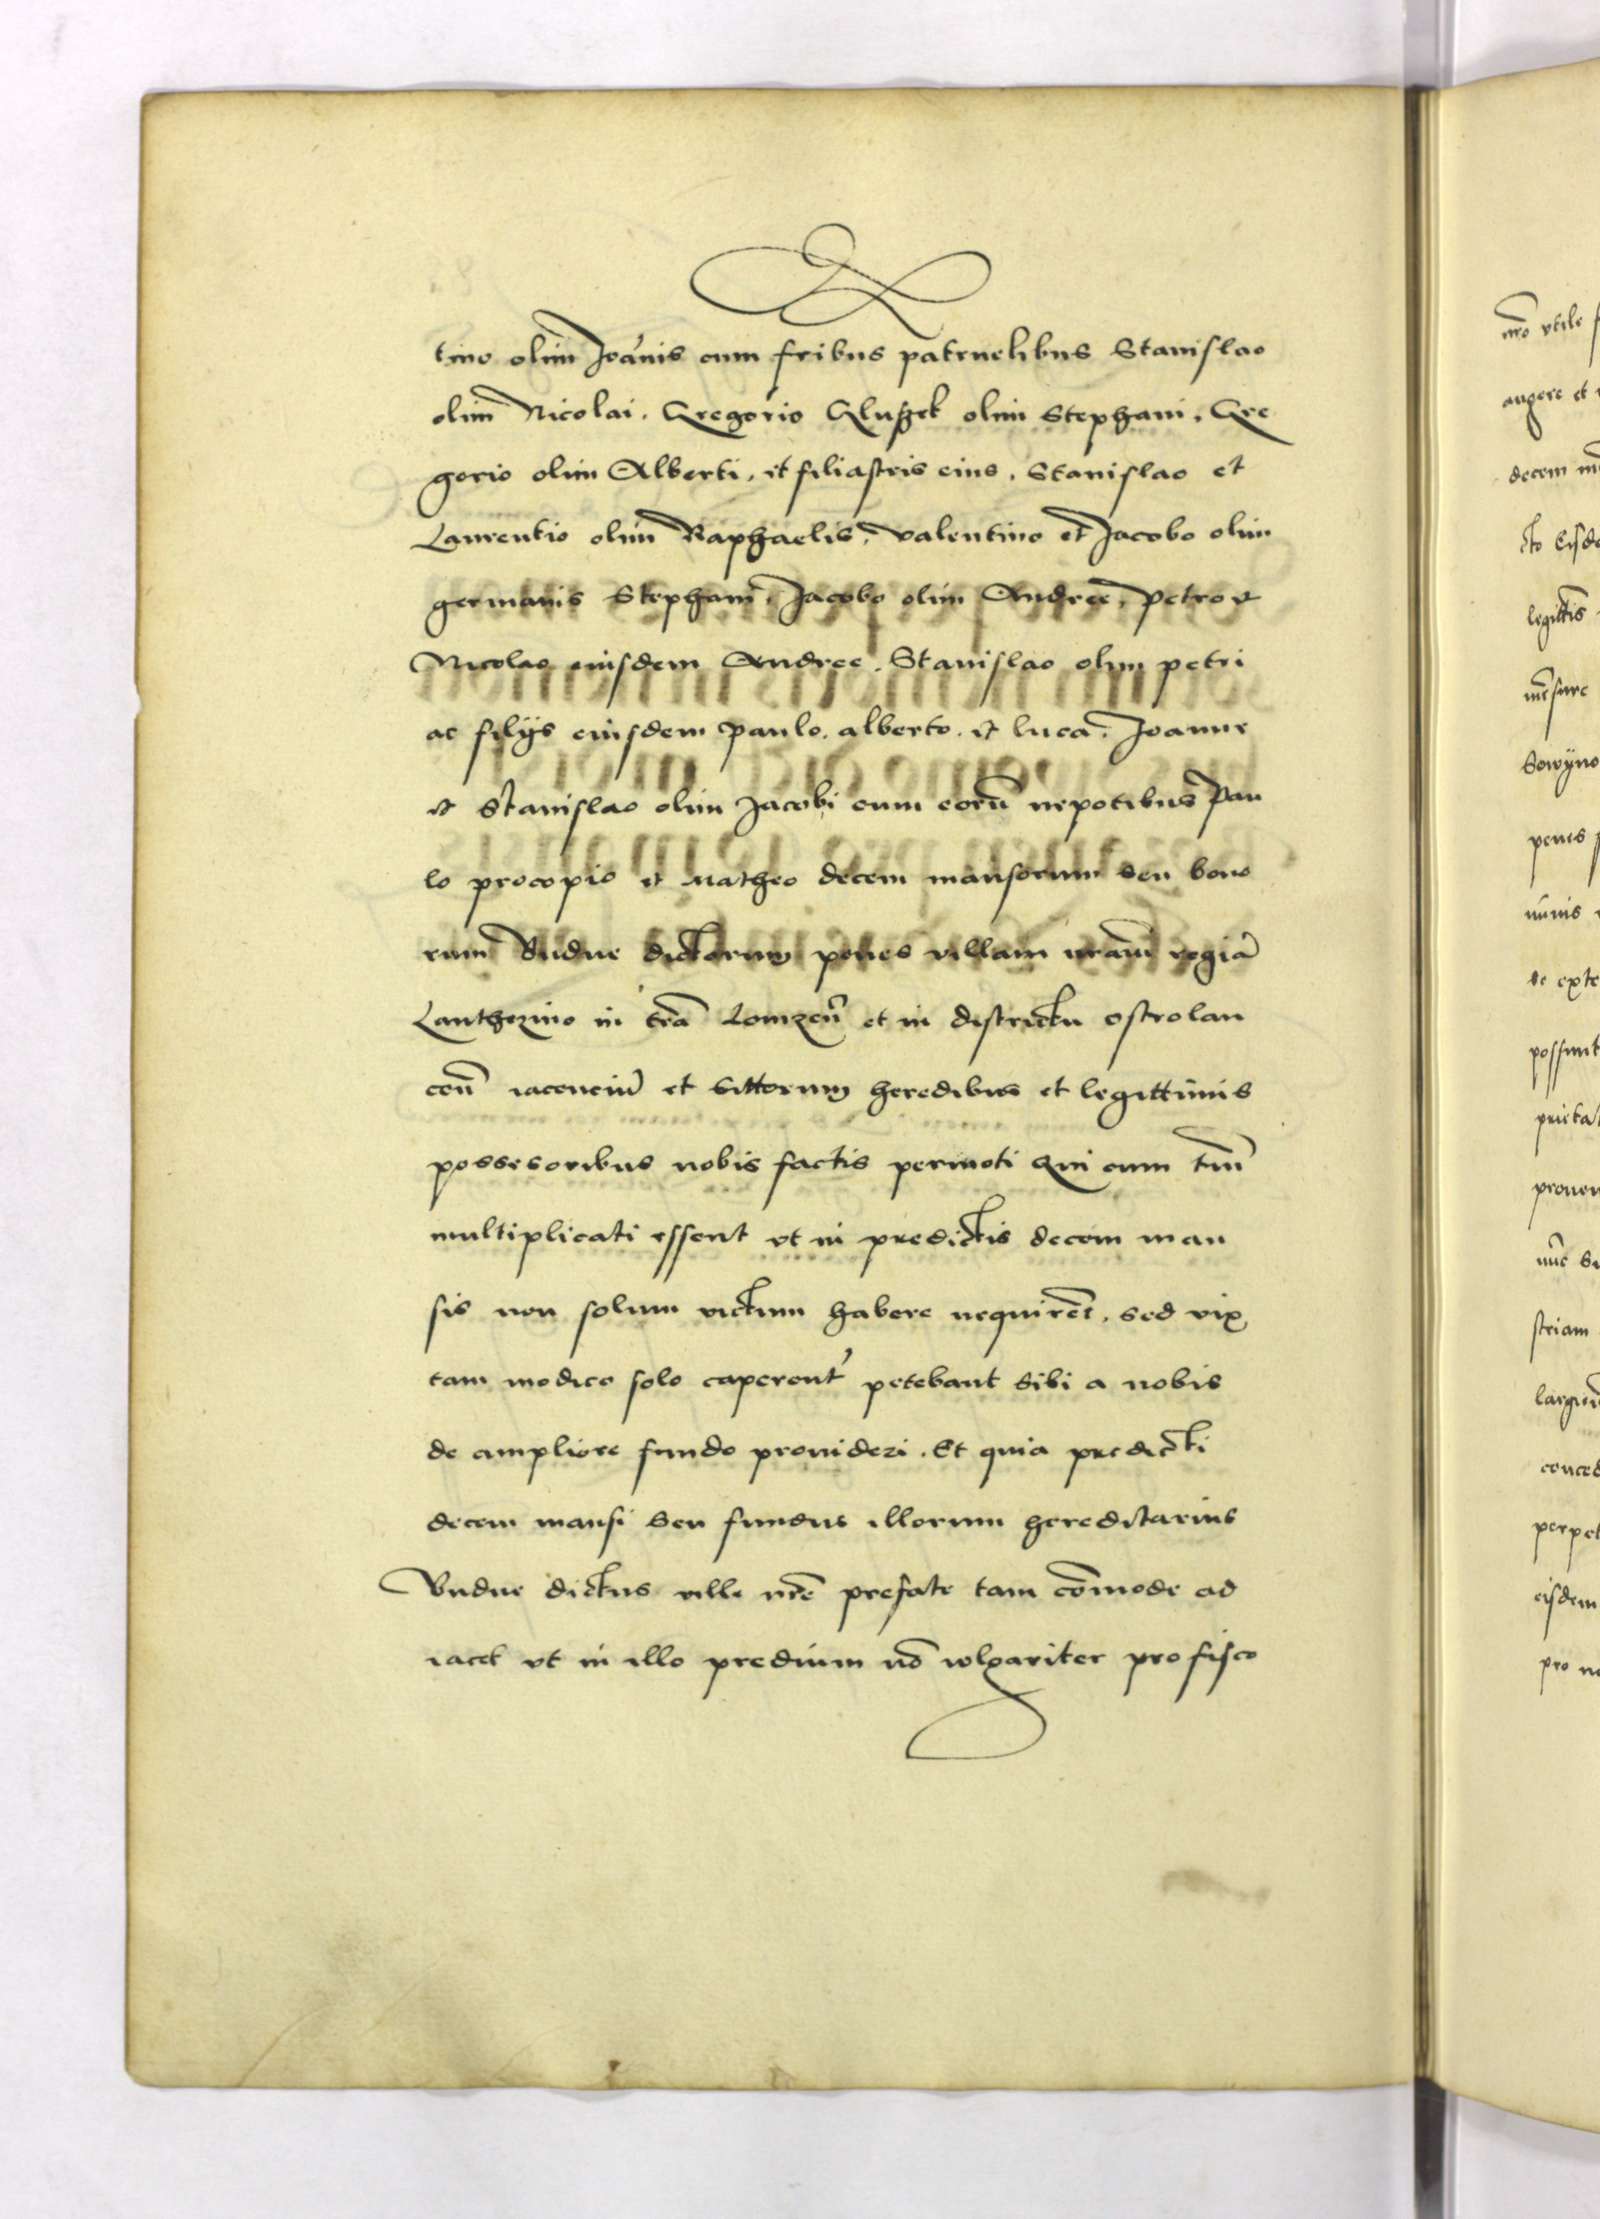 tino olim Joānis cum fribus patruelibus Stanislao
olim Nicolai. Gregorio Glusek olim Stephani, Gre
gorio olim Alberti, et filiastris eius, Stanislao et
Laurentio olim Raphaelis, valentino et Jacobo olim
germanis Stephani, Jacobo olim Andree, petro et
Nicolao eiusdem Andree. Stanislao olim petri
ac filijs eiusdem paulo. alberto. et luca, Joanne
et Stanislao olim Jacobi cum eorū nepotibus Pau
lo procopio et Matheo decem mansorum seu bono
rum Dudne dictorum penes villam nrām regiā
Lanthczino in trā Lomzeñ et in districtu ostrolan
ceñ iacenciū et sittorum heredibus et legittimis
possesoribus nobis factis permoti Qui cum tm̄
multiplicati essent vt in predictis decem man
sis non solum victum habere nequirēt, sed vix
tam modico solo caperent' petebant sibi a nobis
de ampliore fundo provideri. Et quia predicti
decem mansi seu fundus illorum hereditarius
Dudne dictus ville nrē prefate tam cōmode ad
iacet vt in illo predium nō wlgariter pro fisco
nrō vtile
augere et
decem
cto Eisd
legittīs
mēsure
penes
de exte
possunt
nūc
striam
conced
perpet
eisdem